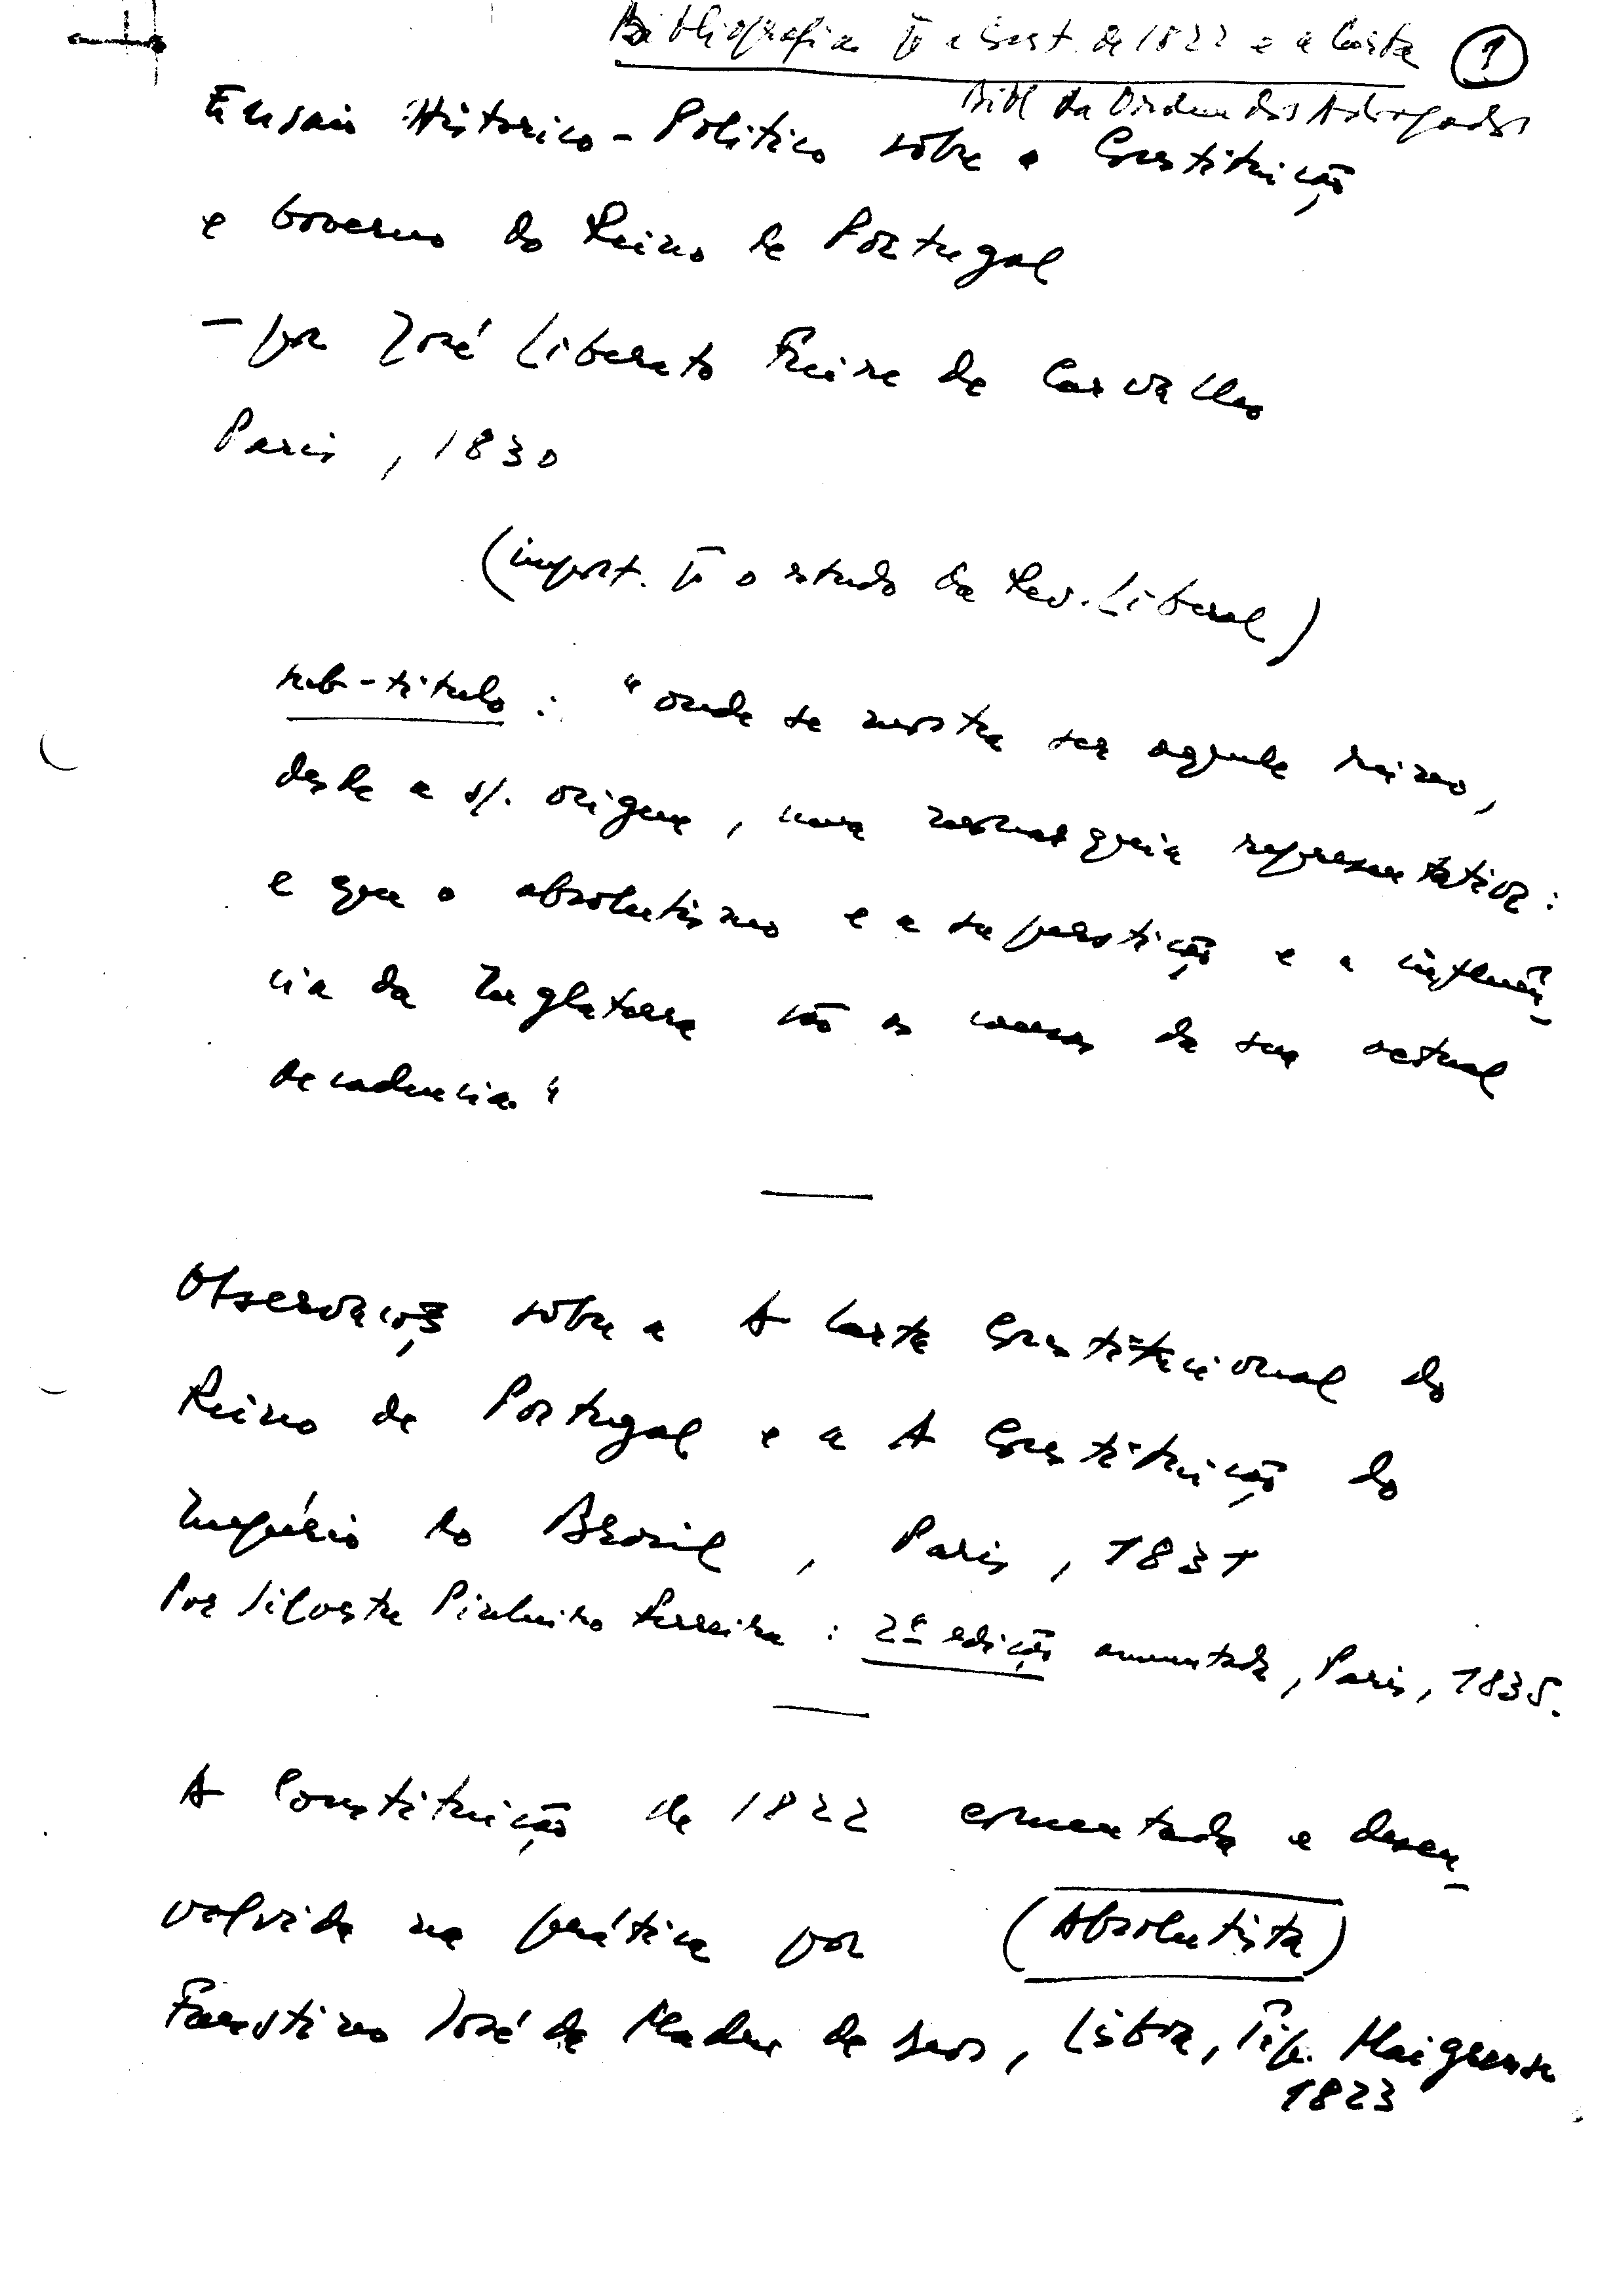 Bibliografia p̄ a Const. de 1822 e a Carta 1
Bibl da Ordem dos Advogados
Ensaio Histórico-Politico sôbre a Constituição
e Governo do Reino de Portugal
- por José Liberato Freire de Carvalho
Paris, 1830
(import. p̄ o estudo da Rev. Liberal)
sub-titulo : "onde se mostra ser aquele reino,
desde a s/. origem, uma monarquia representativa:
e que o absolutismo e a superstição e a influên-
cia da Inglaterra são as causas da sua actual
decadencia."
Observações sôbre a A Carta Constitucional do
Reino de Portugal e a A Constituição do
Império do Brasil, Paris, 1831
Por Silvestre Pinheiro Ferreira : 2ª edição aumentada, Paris, 1835.
A Constituição de 1822 comentada e desen-
volvida na prática por (Absolutista)
Faustino José da Madre de Deos, Lisboa, Tip. Maigrense
1823